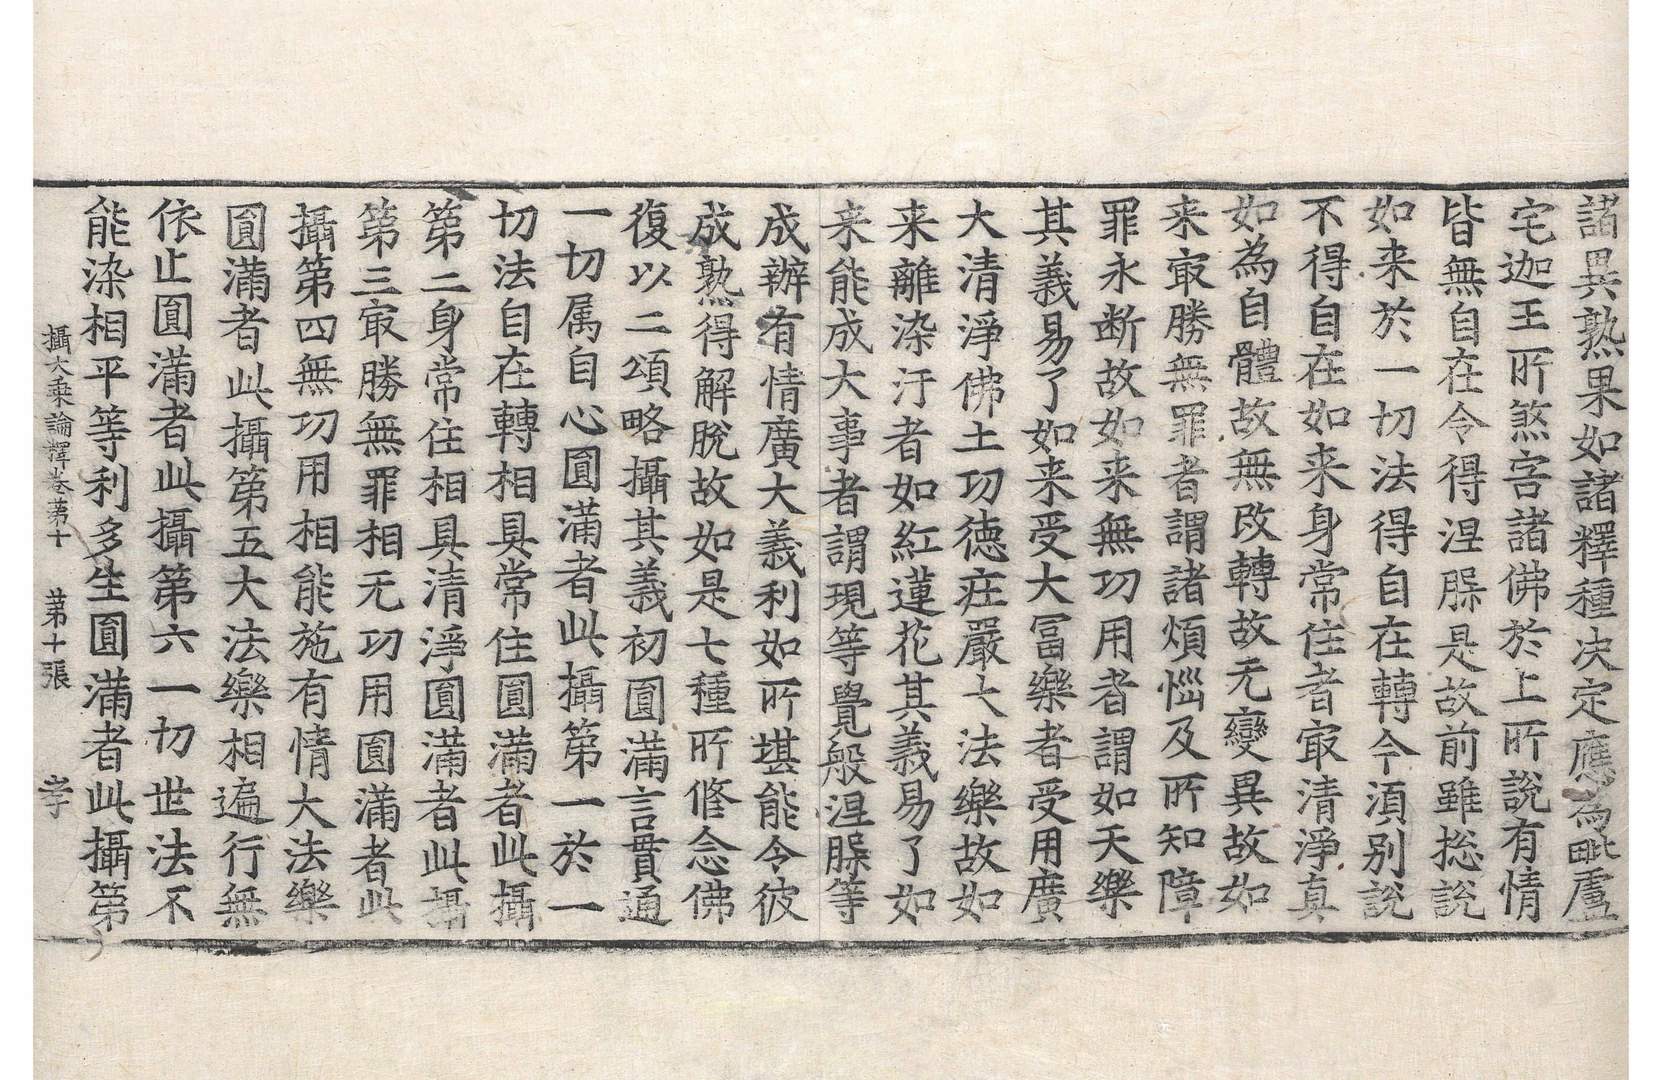 諸異熟果如諸釋種决定應為毗盧
宅迦王所煞害諸佛於上所說有情
皆無自在令得涅脲是故前雖捴說
如来於一切法得自在轉今湏别說
不得自在如来身常住者㝡清淨真
如為自體故無改轉故无變異故如
来㝡勝無罪者謂諸煩惱及所知障
罪永断故如来無功用者謂如天樂
其義易了如来受大冨樂者受用廣
大清淨佛土功德莊嚴大法樂故如
来離染汙者如紅蓮花其義易了如
来能成大事者謂現等覺般涅脲等
成辦有情廣大義利如所堪能令彼
成熟得解脫故如是七種所修念佛
復以二頌略攝其義初圓滿言貫通
一切属自心圓滿者此攝第一於一
切法自在轉相具常住圓滿者此攝
第二身常住相具清淨圓滿者此攝
第三㝡勝無罪相无功用圓滿者此
攝第四無功用相能施有情大法樂
圓滿者此攝第五大法樂相遍行無
依止圓滿者此攝第六一切世法不
能染相平等利多生圓滿者此攝第
攝大乘論釋卷第十 第十張 孝